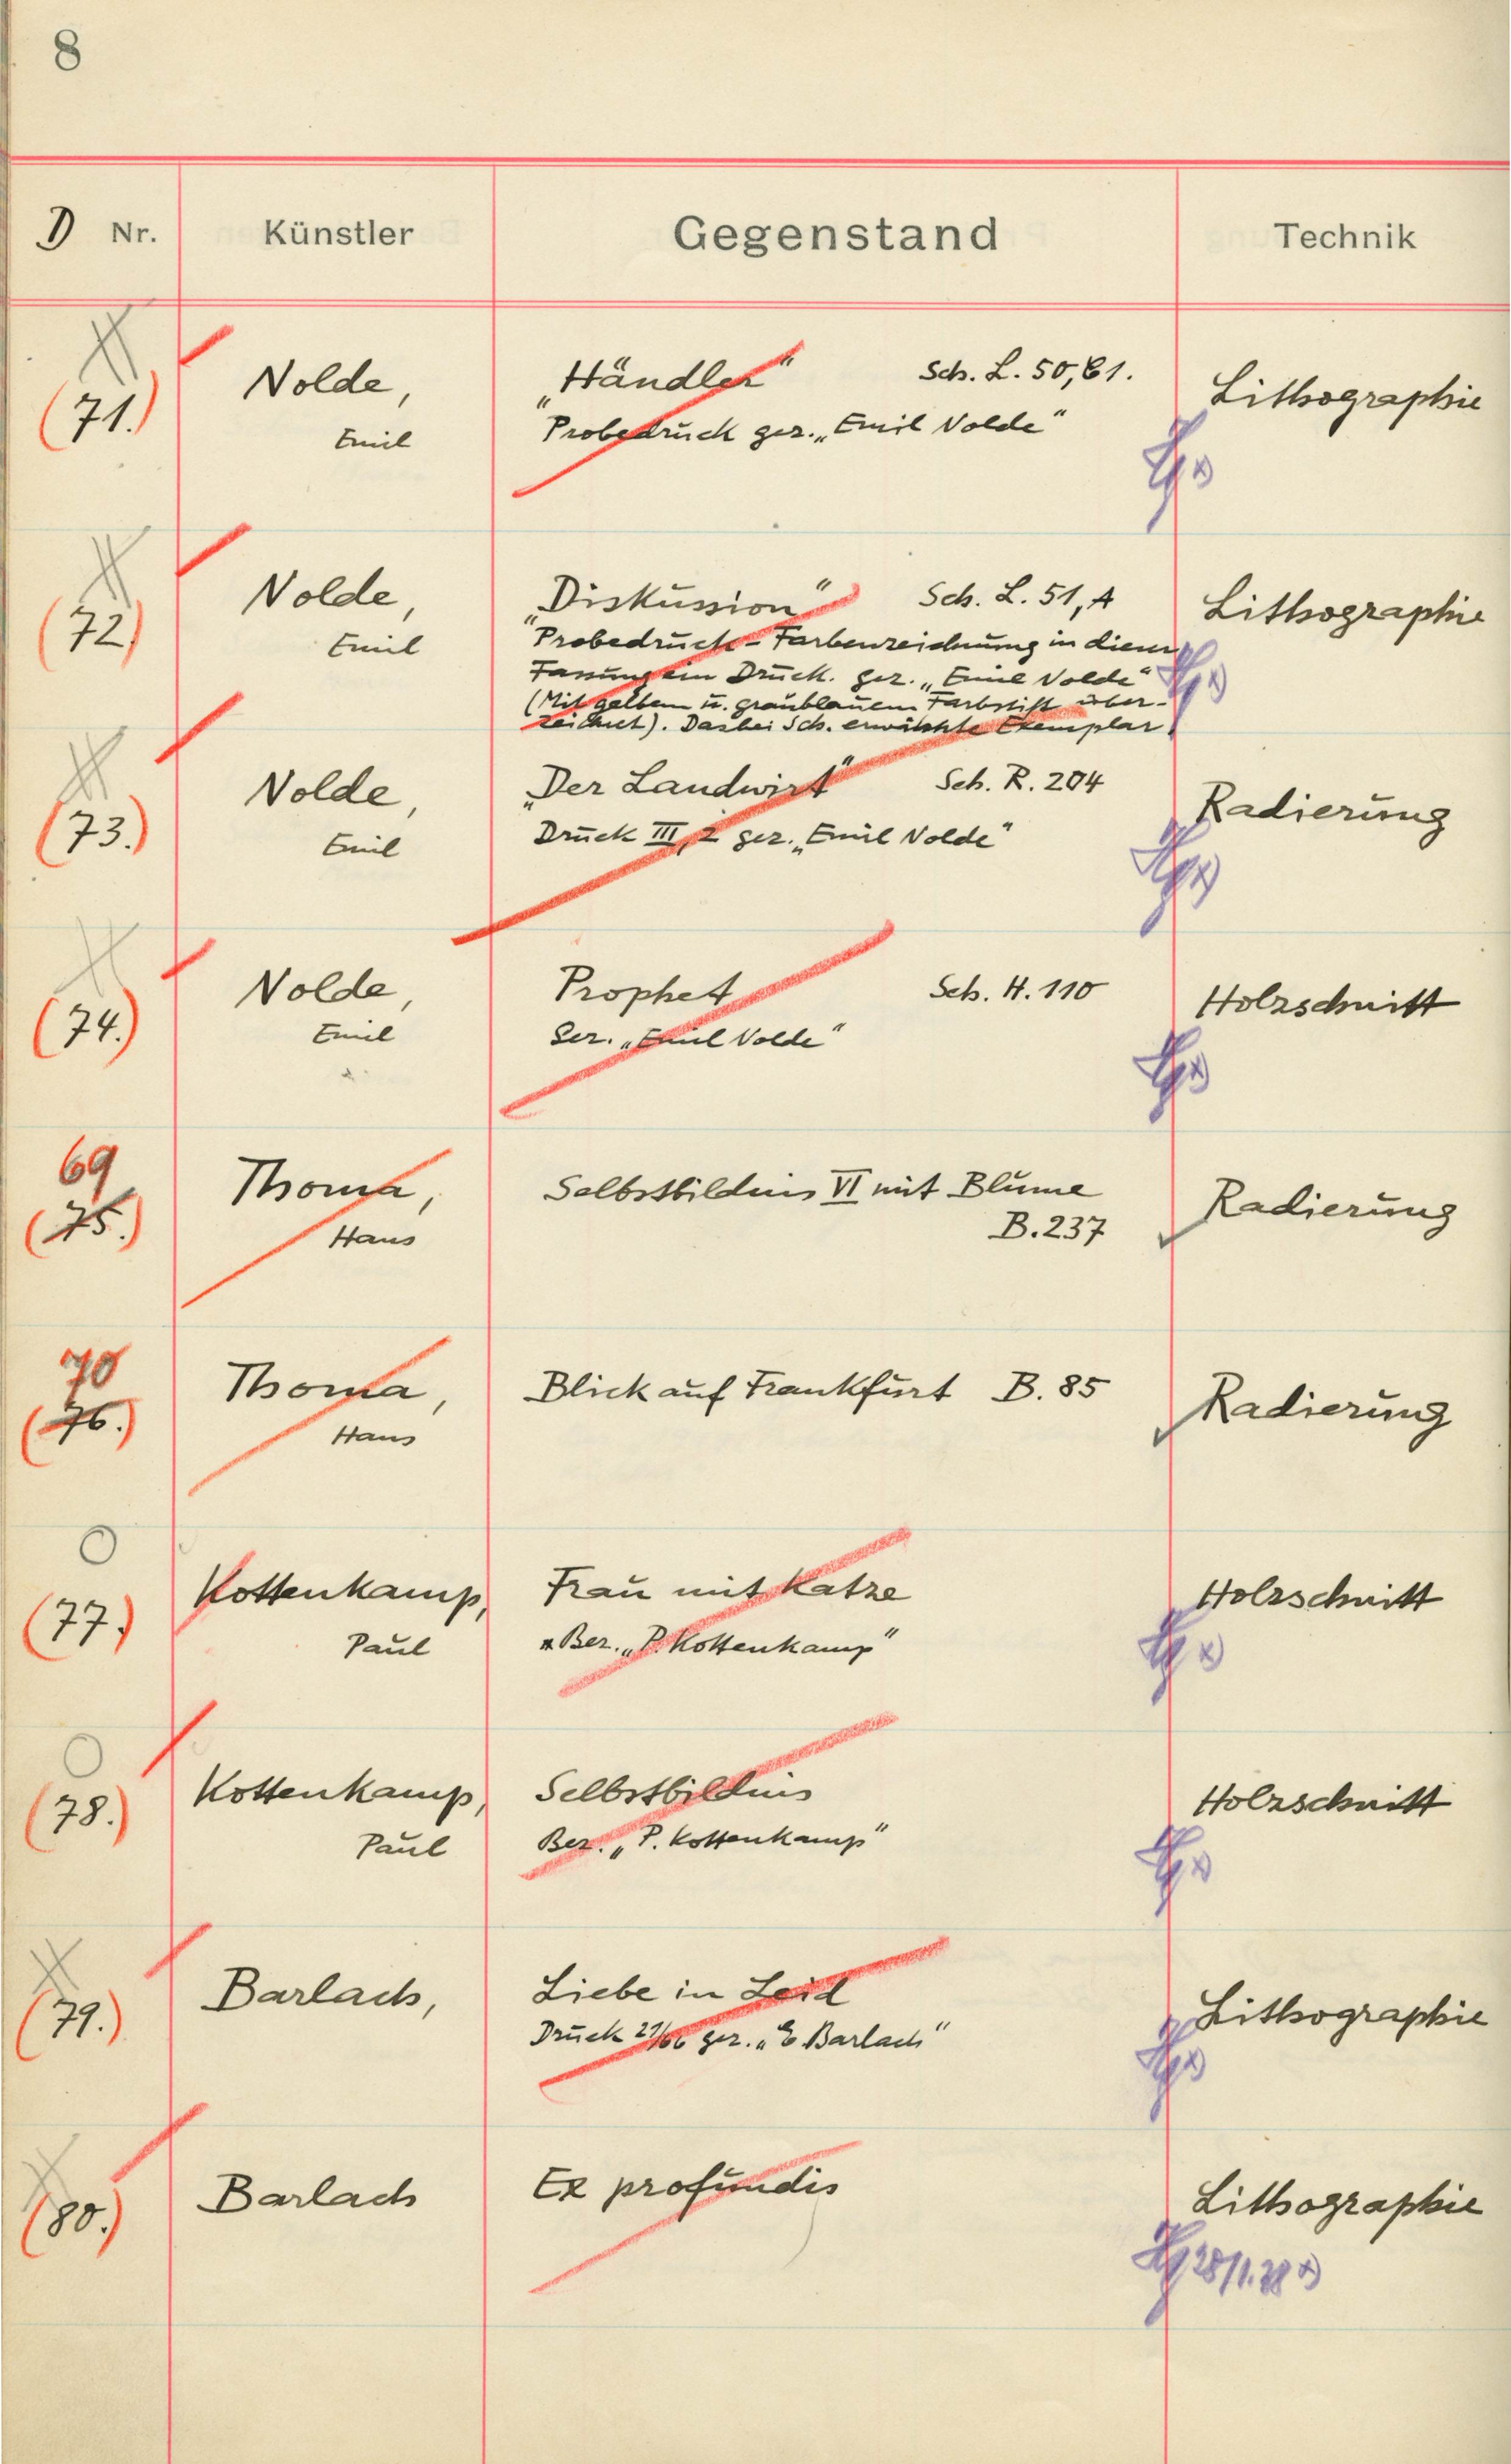 8
D Nr. Künstler Gegenstand Technik
(71.) Nolde, „Händler“ Sch. L. 50, 61. Lithographie
Emil Probedruck gez. „Emil Nolde“
(72) Nolde, „Diskussion“ Sch. L. 51, A Lithographie
Emil Probedruck - Farbenzeichnung in dieser
Fassung ein Druck. gez. „Emil Nolde“
(Mit gelbem u. graublauem Farbstift über-
zeichnet). Das bei Sch. erwähnte Exemplar
(73.) Nolde, „Der Landwirt“ Sch. R. 204 Radierung
Emil Druck III, 2 gez. „Emil Nolde“
(74.) Nolde, Prophet Sch. H. 110 Holzschnitt
Emil Gez. „Emil Nolde“
69
(75.) Thoma, Selbstbildnis VI mit Blume Radierung
Hans B. 237
70
(76.) Thoma, Blick auf Frankfurt B. 85 Radierung
Hans
(77) Kottenkamp, Frau mit Katze Holzschnitt
Paul Bez. „P. Kottenkamp“
(78.) Kottenkamp, Selbstbildnis Holzschnitt
Paul Bez. „P. Kottenkamp“
(79.) Barlach, Liebe in Leid Lithographie
Druck 27/66 gez. „E Barlach“
(80.) Barlach Ex profundis Lithographie